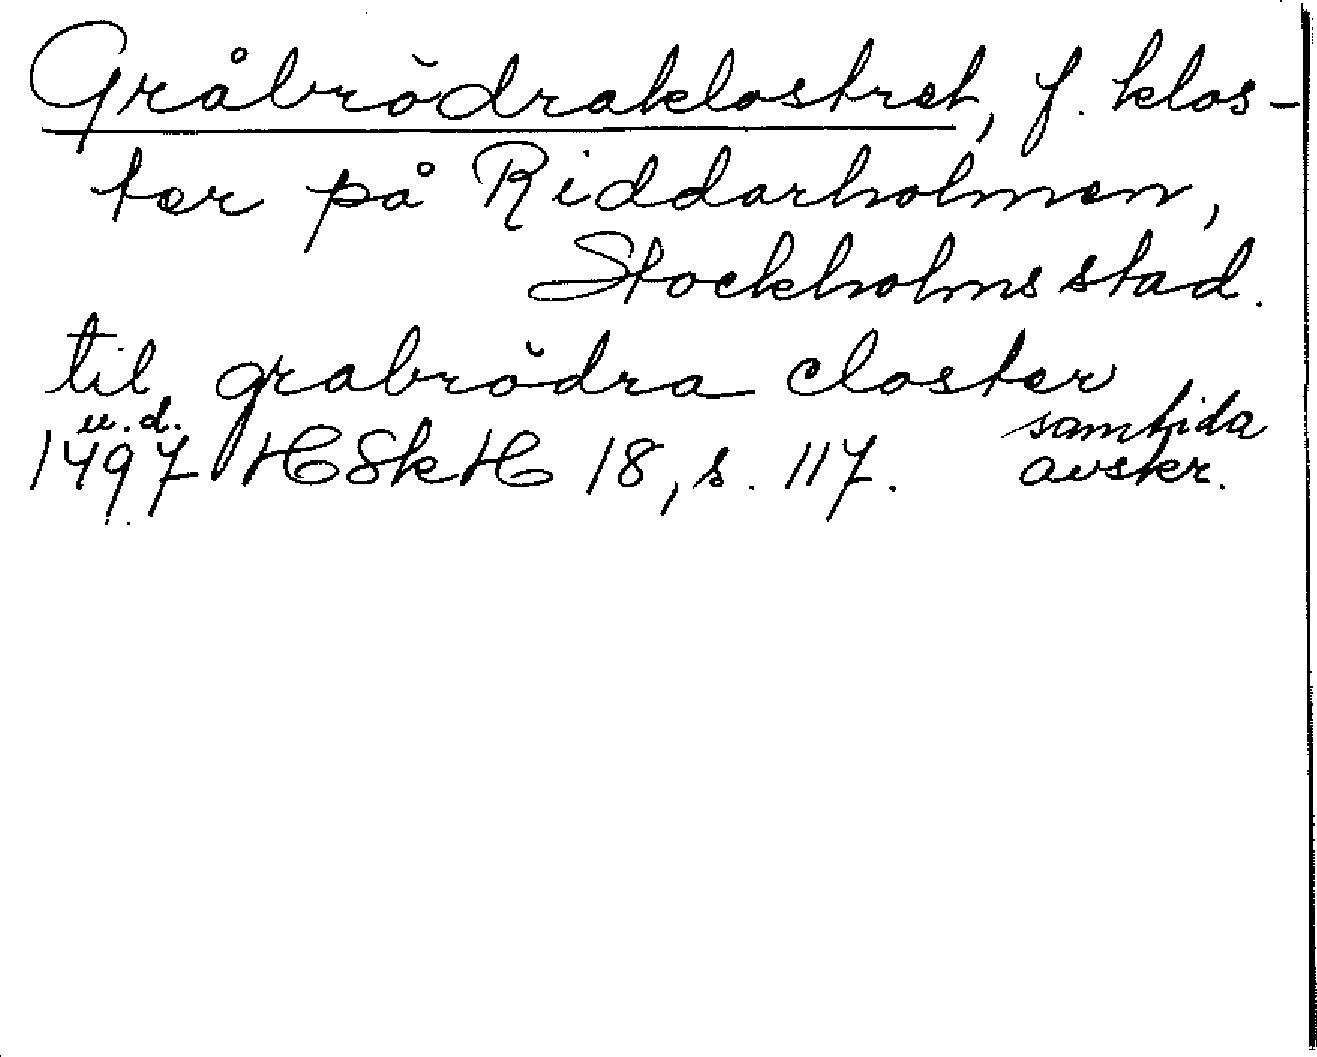 Gråbrödraklostret, f. klos-
ter på Riddarholmen,
Stockholms stad.
til grabrödra closter
u.d.
1497 HSkH 18, s. 117. samtida
avskr.